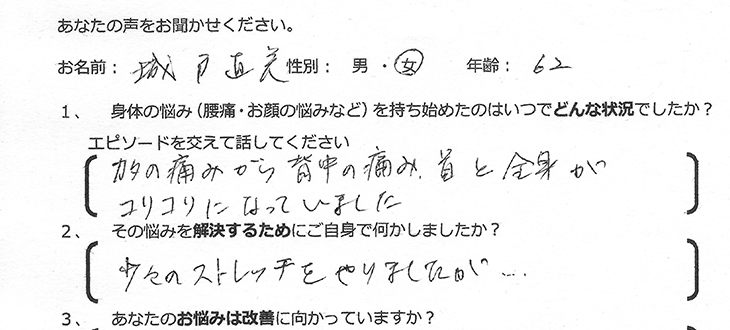 あなたの声をお聞かせください。
お名前： 城戸直美 性別： 男 ・ 女 年齢： 62
１、 身体の悩み（腰痛・お顔の悩みなど）を持ち始めたのはいつでどんな状況でしたか？
エピソードを交えて話してください
カタの痛みから背中の痛み、首と全身が
コリコリになっていました
２、 その悩みを解決するためにご自身で何かしましたか？
少々のストレッチをやりましたが…
３、 あなたのお悩みは改善に向かっていますか？